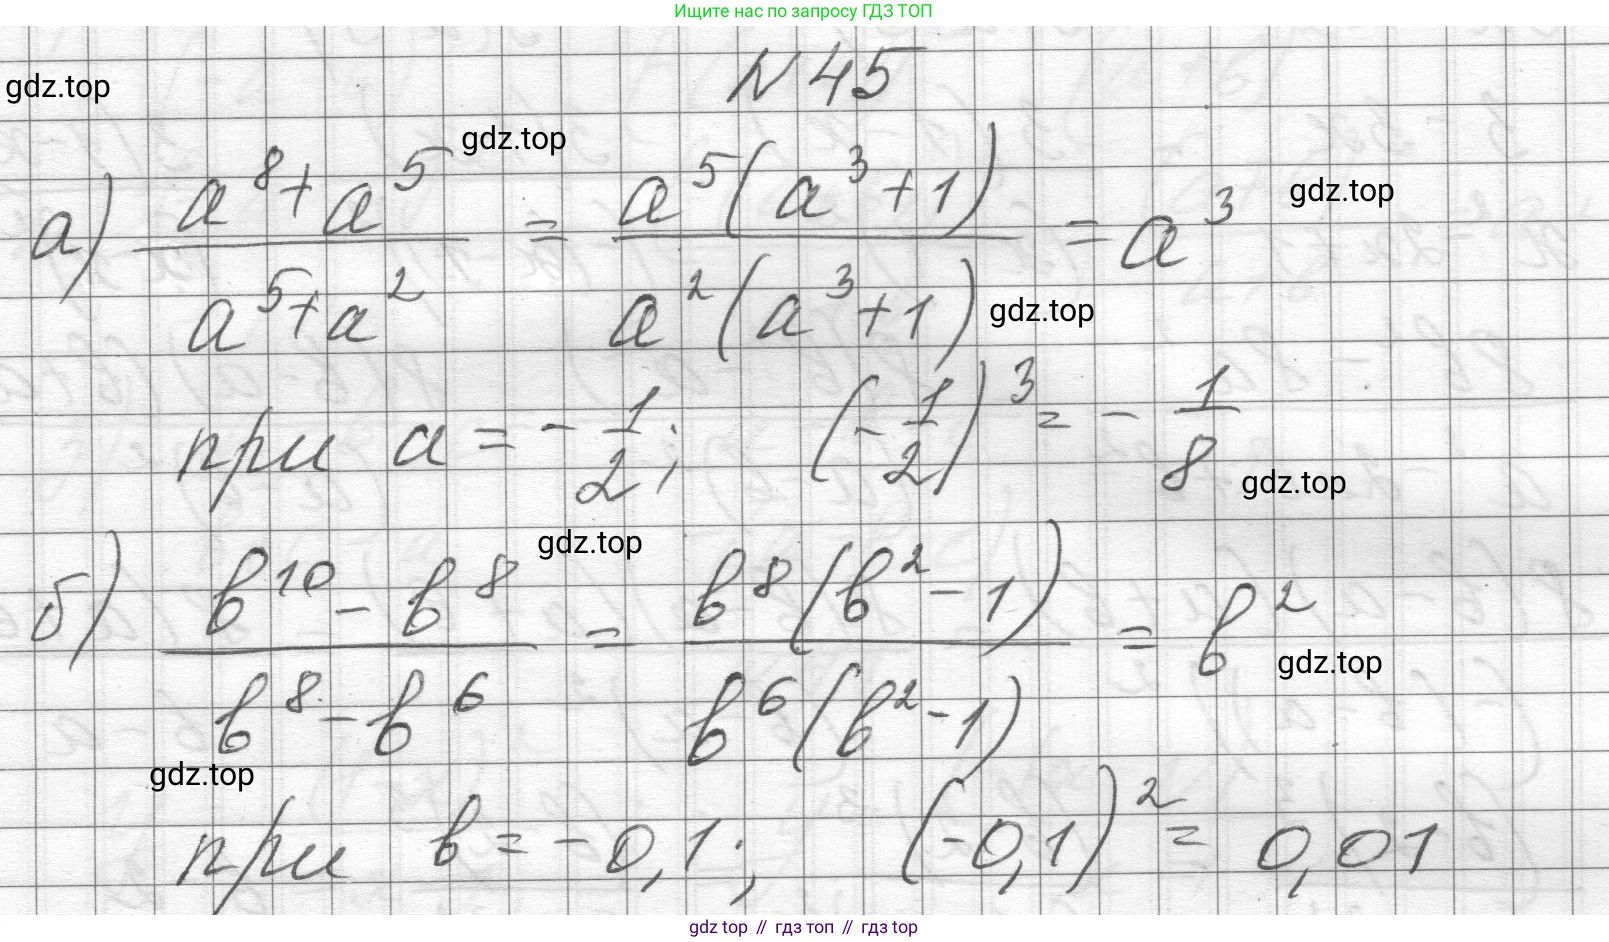 Ищите нас по запросу ГДЗ ТОП
N 45
gdz.top
gdz.top
gdz.top
а) (a^8 + a^5)/(a^5 + a^2) = (a^5(a^3 + 1))/(a^2(a^3 + 1)) = a^3
gdz.top
при a = -1/2; (-1/2)^3 = -1/8
gdz.top
gdz.top
б) (b^10 - b^8)/(b^8 - b^6) = (b^8(b^2 - 1))/(b^6(b^2 - 1)) = b^2
gdz.top
gdz.top
при b = -0,1; (-0,1)^2 = 0,01
gdz top // гдз топ // гдз top